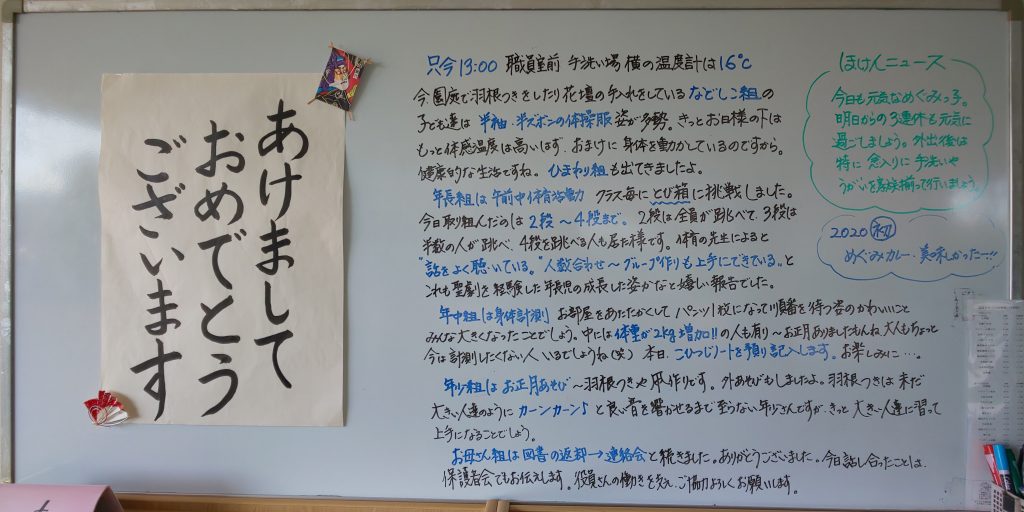 あけまして
おめでとう
ございます
只今13:00 職員室前 手洗い場 横の温度計は16℃
今、園庭で羽根つきをしたり花壇の手入れをしているなでしこ組の
子ども達は 半袖・半ズボンの体操服 姿が多勢。きっとお日様の下は
もっと体感温度は高いはず、おまけに身体を動かしているのですから。
健康的な生活ですね。ひまわり組も出てきましたよ。
年長組は 午前中体育活動 クラス毎にとび箱に挑戦しました。
今日取り組んだのは 2段～4段まで。2段は全員が跳べて、3段は
半数の人が跳べ、4段を跳べる人も居た様です。体育の先生によると
"話をよく聴いている。"人数合わせ～グループ作りも上手にできている。と
これも聖劇を経験した年長児の成長した姿かなと嬉しい報告でした。
年中組は身体計測 お部屋をあたたかくして パンツ1枚になって順番を待つ姿のかわいいこと
みんな大きくなったことでしょう。中には体重が2kg増加!!の人も有り～お正月ありましたもんね 大人もちょっと
今は計測したくない人 いるでしょうね(笑) 本日、こひつじノートを預り記入します。お楽しみに…。
年少組は お正月あそび～羽根つきや凧作りです。外あそびもしましたよ。羽根つきは まだ
大きい人達のように カーンカーン♪ と良い音を響かせるまで至らない年少さんですが、きっと 大きい人達に習って
上手になることでしょう。
お母さん組は 図書の返却→連絡会と続きました。ありがとうございました。今日話し合ったことは、
保護者会でもお伝えします。役員さんの働きを支え、ご協力よろしくお願いします。
ほけんニュース
今日も元気なめぐみっ子。
明日からの3連休も元気に
過ごしましょう。外出後は
特に念入りに手洗いや
うがいを家族揃って行いましょう
2020 初
めぐみカレー・美味しかったー!!